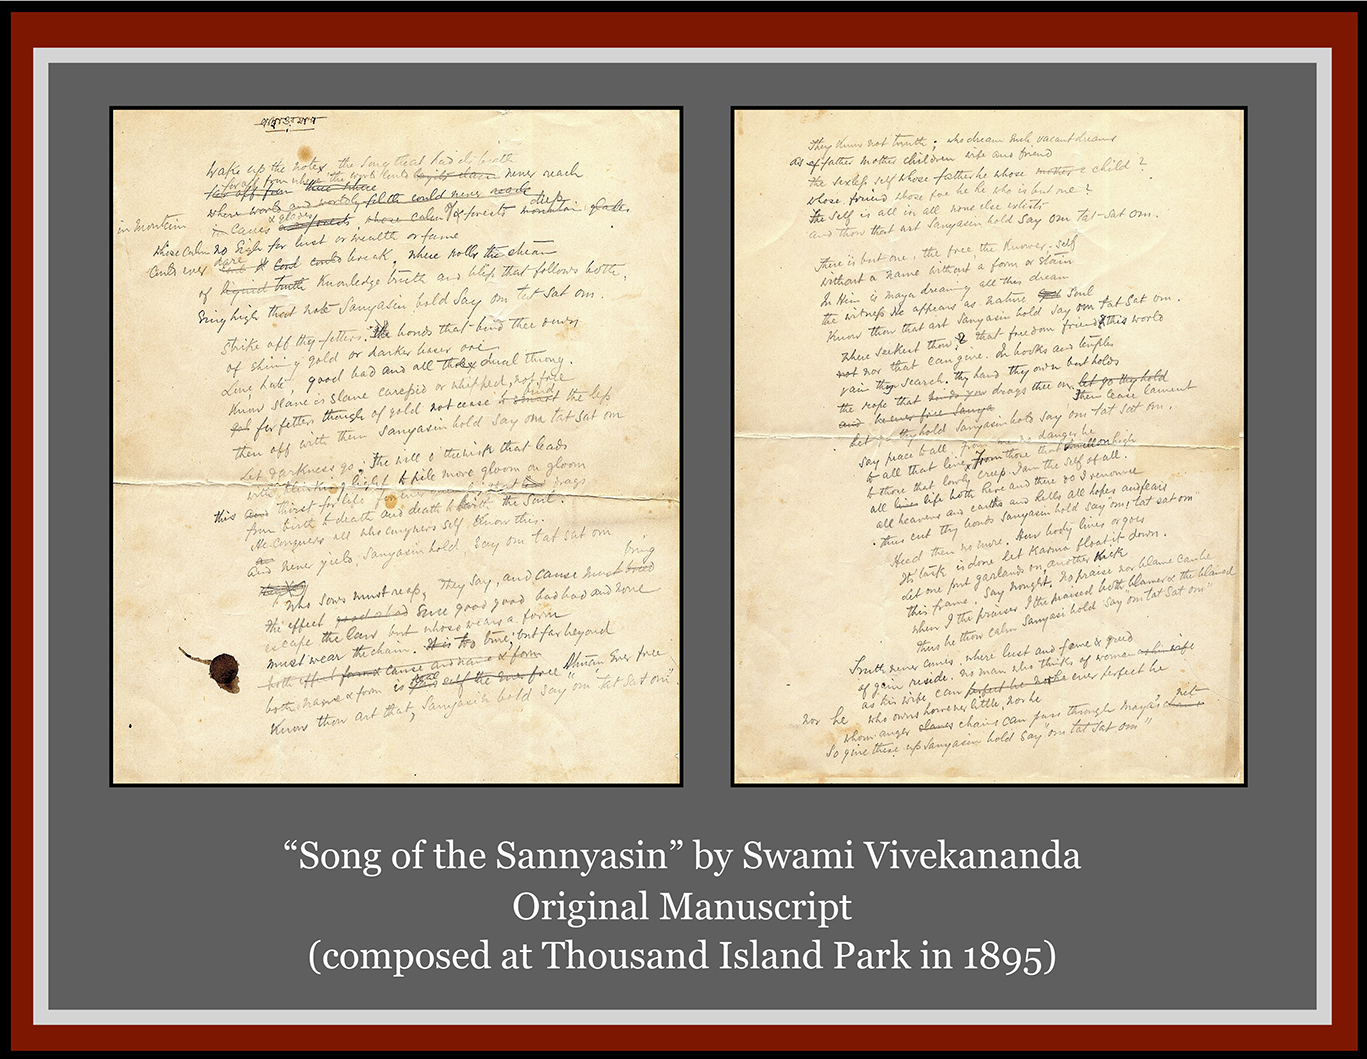 Wake up the note, the song that had its birth
far off from where the world could never reach
where world and worldly filth could never reach
in Mountain Caves & glades of forests deep
whose calm no sigh for lust or wealth or fame
could ever dare break, where rolls the stream
of Knowledge truth and bliss that follows both,
Sing high that note Sanyasin bold Say om tat Sat om.
Strike off thy fetters. The bonds that bind thee down
of shining gold or darker baser ore
Love, hate, good bad and all the dual throng.
Know slave is slave caressed or whipped, not free
for fetters though of gold not cease to bind the less
then off with them Sanyasin bold Say om tat Sat om
Let darkness go. The will o the wisp that leads
with blinking light to pile more gloom on gloom
this thirst for life for ever drags
from birth to death and death to birth the Soul.
He conquers all who conquers self. Know this.
And never yield, Sanyasin bold, Say om tat Sat om
bring
Who sows must reap, they say, and cause must
the effect good or bad Since good good bad bad and none
escape the law but whoso wears a form
must wear the chain. It is too true; but far beyond
both effect cause and name & form
both name & form is self the ever free Atman Ever free
Know thou art that, Sanyasin bold Say "om tat Sat om"
They know not truth; who dream such vacant dreams
as of father mother children wife and friend
the sexless self whose father he whose mother child?
whose friend whose foe he he who is but one?
the Self is all in all none else exists
and thou that art Sanyasin bold Say om tat-sat om.
There is but one, the free, the Knower-self
without a name without a form or stain
In Him is maya dreaming all this dream
the witness he appears as nature Soul
Know thou that art Sanyasin bold Say om tat Sat om.
Where seekest thou? that freedom friend this world
not nor that can give. In books and temples
vain thy search. Thy hand thy own that holds
the rope that drags thee on. let go thy hold
Then cease lament
Let go thy hold Sanyasin bold Say om tat Sat om.
Say peace to all. From me no danger be
to all that live, From those that dwell on high
to those that lowly creep. I am the Self of all.
all life both here and there do I renounce
all heavens and earths and hells all hopes and fears
thus cut thy bonds Sanyasin bold Say om tat Sat om
Heed then no more. How body lives or goes
Its task is done let Karma float it down.
Let one put garlands on, another Kick
this frame. Say nought. No praise nor blame can be
when I the praiser I the praised both blamer & the blamed
thus be thou calm Sanyasi bold Say "om tat Sat om"
Truth never comes. where lust and fame & greed
of gain reside. no man who thinks of woman as his wife
as his wife can ever perfect be
nor he who owns however little, Nor he
net
whom anger chains can pass through maya's
So give these up Sanyasin bold Say "om tat Sat om"
“Song of the Sannyasin” by Swami Vivekananda
Original Manuscript
(composed at Thousand Island Park in 1895)